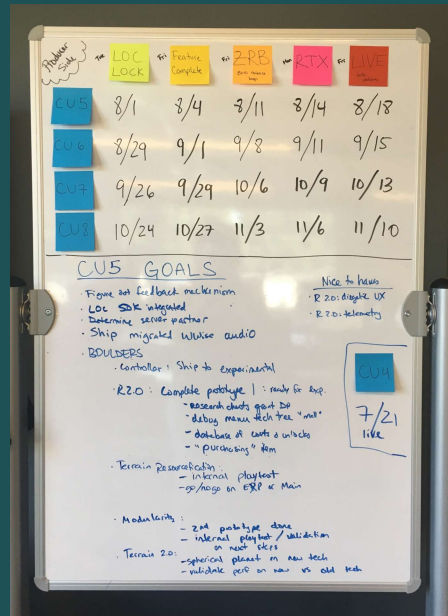 Producer Side
Tue LOC LOCK
Fri Feature Complete
Fri ZRB
Mon RTX
Fri LIVE
CU5 8/1 8/4 8/11 8/14 8/18
CU6 8/29 9/1 9/8 9/11 9/15
CU7 9/26 9/29 10/6 10/9 10/13
CU8 10/24 10/27 11/3 11/6 11/10
CU5 GOALS
· Figure out feedback mechanism
· LOC SDK integrated
· Determine server partner
· Ship migrated WWise audio
· BOULDERS
· Controller: Ship to experimental
· R2.0: Complete prototype 1: ready for exp.
- research charts grant DP
- debug menu tech tree "mall"
- database of costs & unlocks
- "purchasing" item
· Terrain Resourcification:
- internal playtest
- go/nogo on EXP or Main
· Modularity:
- 2nd prototype done
- internal playtest / validation
on next steps
· Terrain 2.0:
- spherical planet on new tech
- validate perf on new vs old tech
Nice to haves
· R 2.0: diegetic UX
· R 2.0: telemetry
CU4
7/21
live